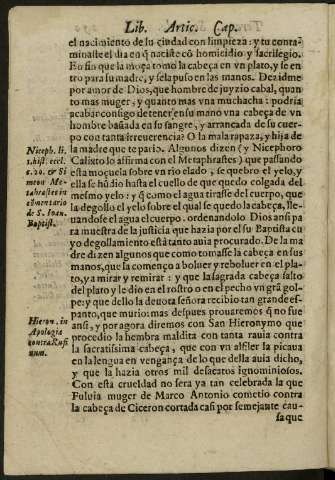 Lib. Artic. Cap.
el nacimiento de su ciudad con limpieza: y tu conta-
minaste el dia en q̃ naciste cõ homicidio y sacrilegio.
En fin que la moça tomo la cabeça en vn plato, y se en
tro para su madre, y se la puso en las manos. Dezidme
por amor de Dios, que hombre de juyzio cabal, quan
to mas muger, y quanto mas vna muchacha: podria
acabar consigo detener en su mano vna cabeça de vn
hombre bañada en su sangre, y arrancada de su cuer-
po con tanta irreuerencia? O mala rapaza, y hija de
la madre que te pario. Algunos dizen (y Nicephoro
Calixto lo affirma con el Metaphrastes) que passando
esta moçuela sobre vn rio elado, se quebro el yelo, y
ella se hũdio hasta el cuello de que quedo colgada del
mesmo yelo: y q̃ como el agua tirasse del cuerpo, que
la degollo el yelo sobre el qual se quedo la cabeça, lle-
uandose el agua el cuerpo. ordenandolo Dios ansi pa
ra muestra de la justicia que hazia por el su Baptista cu
yo degollamiento està tanto auia procurado. De la ma
dre dizen algunos que como tomasse la cabeça en sus
manos, que la començo a boluer y reboluer en el pla-
to, ya mirar y remirar: y que la sagrada cabeça salto
del plato y le dio en el rostro o en el pecho vn grã gol-
pe: y que dello la deuota señora recibio tan grande es-
panto, que murio: mas despues prouaremos q̃ no fue
ansi, y por agora diremos con San Hieronymo que
procedio la hembra maldita con tanta rauia contra
la sacratissima cabeça, que con vn alfiler la picaua
en la lengua en vengança de lo que della auia dicho,
y que la hazia otros mil desacatos ignominiosos.
Con esta crueldad no sera ya tan celebrada la que
Fuluia muger de Marco Antonio cometio contra
la cabeça de Ciceron cortada casi por semejante cau-
sa que
Niceph. li.
1. hist. eccl.
c. 20. & Si
meon Me-
taphrastes in
commentario
de S. Ioan.
Baptist.
Hieron. in
Apologia
contra Rufi
num.